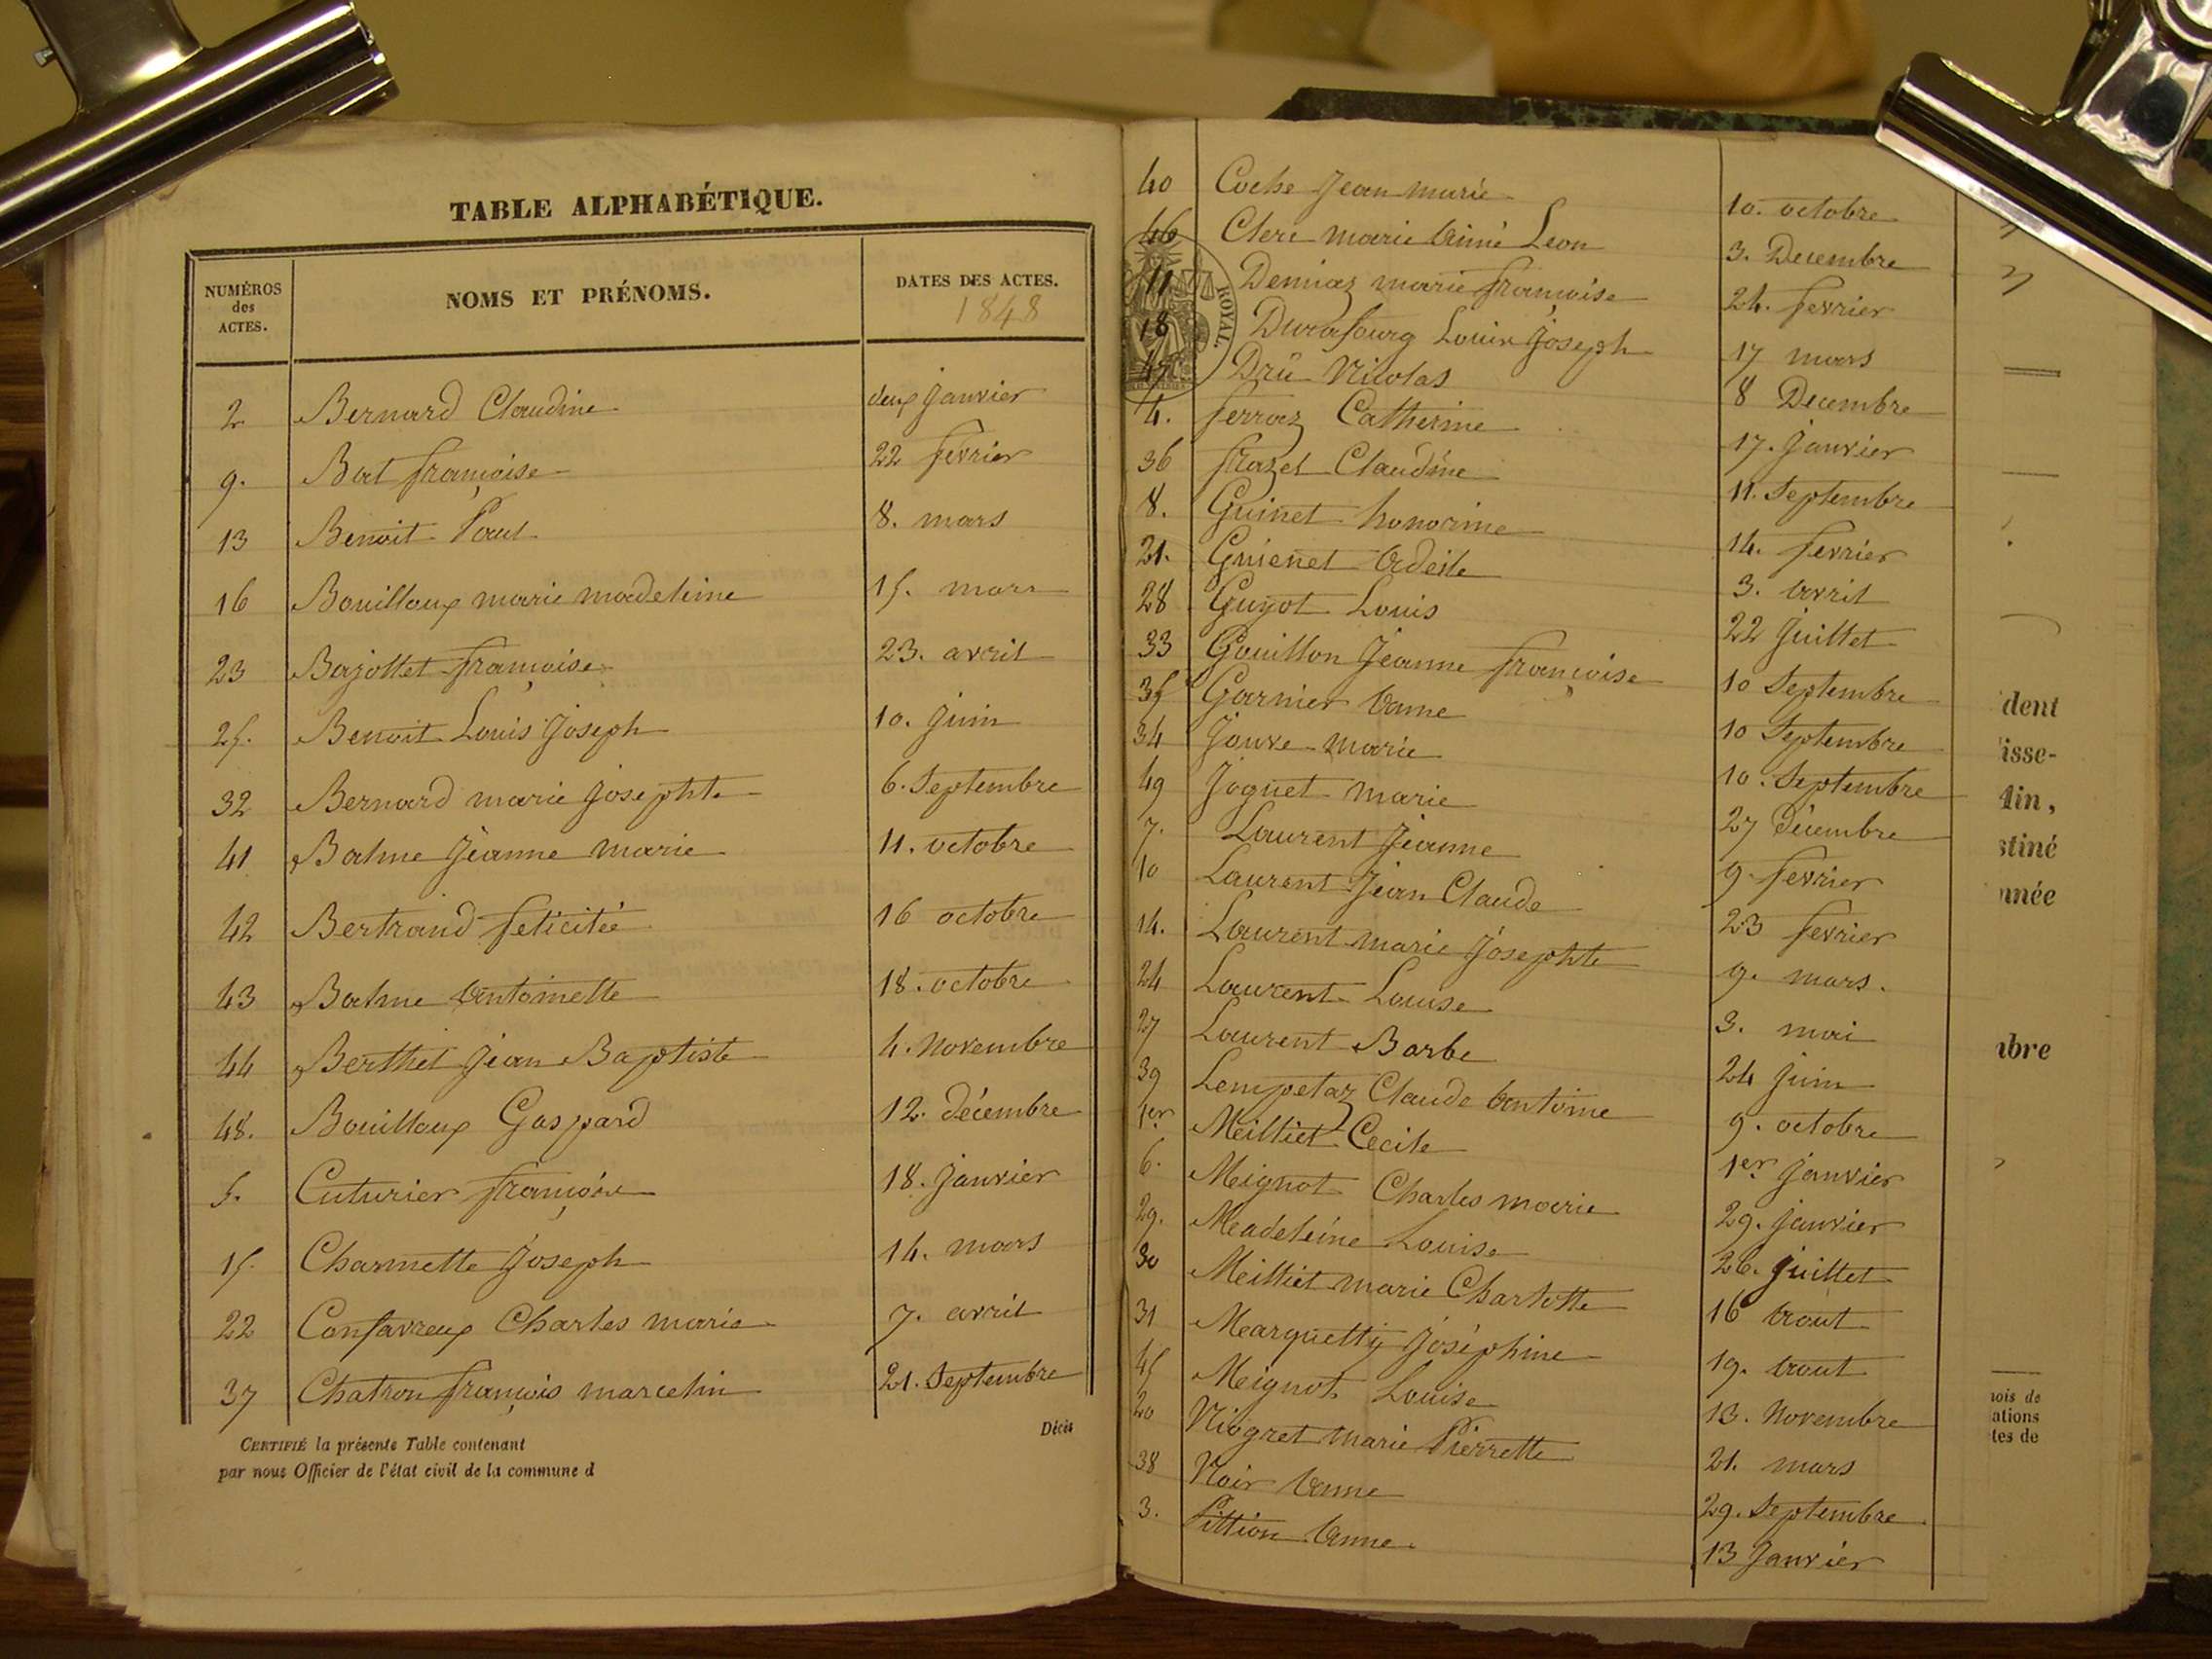 TABLE ALPHABÉTIQUE.
NUMÉROS des ACTES. NOMS ET PRÉNOMS. DATES DES ACTES. 1848
2 Bernard Claudine deux janvier
9. Bat françoise 22 fevrier
13 Benoit Paul 8. mars
16 Bouilloux marie madeleine 15. mars
23 Bajollet françoise 23. avril
25. Benoit Louis Joseph 10. Juin
32 Bernard marie Josephte 6. Septembre
41 Balme Jeanne marie 11. octobre
42 Bertrand félicitée 16 octobre
43 Balme antoinette 18. octobre
44 Berthet Jean Baptiste 4. Novembre
48. Bouilloux Gaspard 12. décembre
5. Cuturier 18. janvier
15. Charmette Joseph 14. mars
22 Confavreux Charles marie 7. avril
37 Chatron françois marcelin 21. Septembre
CERTIFIÉ la présente Table contenant
par nous Officier de l'état civil de la commune d
Décès
40 Coche Jean marie 10. octobre
46 Clere marie aimé Leon 3. Decembre
11 Demiaz marie françoise 24. fevrier
18 Durafourg Louis Joseph 17 mars
47. Drû Nicolas 8 Decembre
4. ferraz Catherine 17. Janvier
36 frazel Claudine 11. Septembre
8. Guinet honorine 14. fevrier
21. Guienet adeile 3. avril
28 Guyot Louis 22 Juillet
33 Gouillon Jeanne françoise 10 Septembre
35 Garnier anne 10 Septembre
34 Jouve marie 10. Septembre
49 Joguet marie 27 Décembre
7. Laurent Jeanne 9. fevrier
10 Laurent Jean Claude 23 fevrier
14. Laurent marie Josephte 9. mars.
24 Laurent Louise 3. mai
27 Laurent Barbe 24 juin
39 Lempetaz Claude antoine 9. octobre
1er Meilliet Cecile 1er janvier
6. Meignot Charles marie 29. janvier
29. Meadeleine Louise 26. Juillet
30 Meilliet marie Charlotte 16 aout
31 Mearquetty Joséphine 19. aout
45 Meignot Louise 13. Novembre
20 Niogret marie Pierrette 21. mars
38 Noir anne 29. Septembre
3. Pittion anne 13 Janvier
ROYAL.
dent
isse-
lin,
stiné
nnée
mbre
nois de
ations
tes de